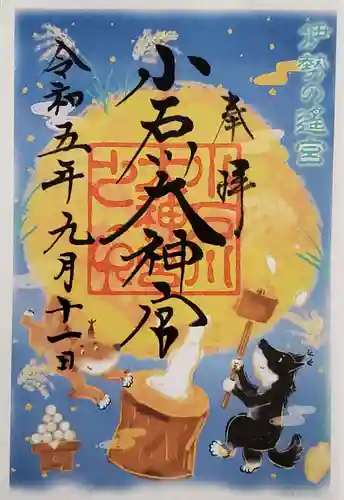 伊勢の遥宮
奉拝
小石川大神宮
令和五年九月十一日